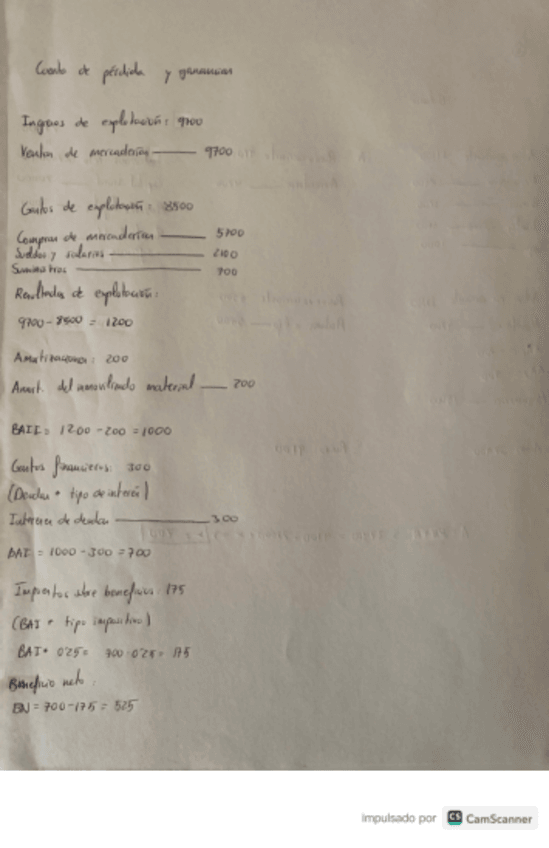 Cuenta de pérdida y ganancias
Ingresos de explotación: 9700
Ventas de mercaderías 9700
Gastos de explotación: 8500
Compras de mercaderías 5700
Sueldos y salarios 2100
Suministros 700
Resultados de explotación:
9700-8500 = 1200
Amortizaciones: 200
Amort. del inmovilizado material 200
BAII = 1200-200 = 1000
Gastos financieros: 300
(Deudas * tipo de interés)
Intereses de deudas 300
BAI = 1000-300 = 700
Impuestos sobre beneficios: 175
(BAI * tipo impositivo)
BAI * 0'25 = 700·0'25 = 175
Beneficio neto:
BN = 700-175 = 525
Impulsado por CS CamScanner